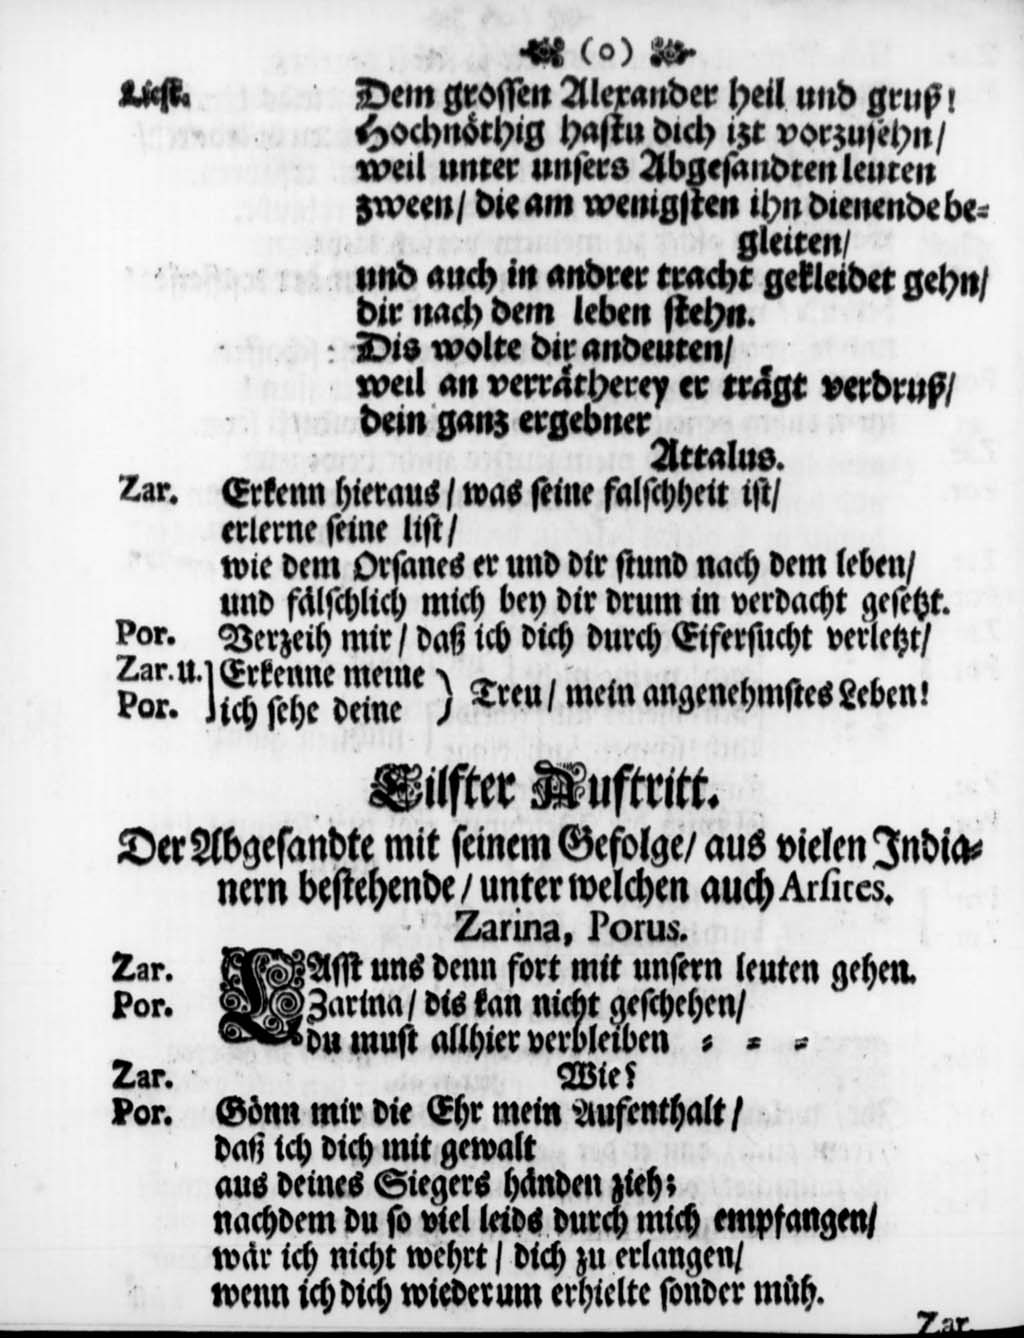 (o)
Liest. Dem grossen Alexander heil und gruß!
Hochnöthig hastu dich izt vorzusehn/
weil unter unsers Abgesandten leuten
zween/ die am wenigsten ihn dienende be=
gleiten/
und auch in andrer tracht gekleidet gehn/
dir nach dem leben stehn.
Dis wolte dir andeuten/
weil an verrätherey er trägt verdruß/
dein ganz ergebner
Attalus.
Zar. Erkenn hieraus/ was seine falschheit ist/
erlerne seine list/
wie dem Orsanes er und dir stund nach dem leben/
und fälschlich mich bey dir drum in verdacht gesetzt.
Por. Verzeih mir/ daß ich dich durch Eifersucht verletzt/
Zar. u. ] Erkenne meine } Treu/ mein angenehmstes Leben!
Por. ] ich sehe deine
Eilfter Auftritt.
Der Abgesandte mit seinem Gefolge/ aus vielen India=
nern bestehende/ unter welchen auch Arsites.
Zarina, Porus.
Zar. LAsst uns denn fort mit unsern leuten gehen.
Por. Zarina/ dis kan nicht geschehen/
du must allhier verbleiben = = =
Zar. Wie?
Por. Gönn mir die Ehr mein Aufenthalt/
daß ich dich mit gewalt
aus deines Siegers händen zieh;
nachdem du so viel leids durch mich empfangen/
wär ich nicht wehrt/ dich zu erlangen/
wenn ich dich wiederum erhielte sonder müh.
Zar.